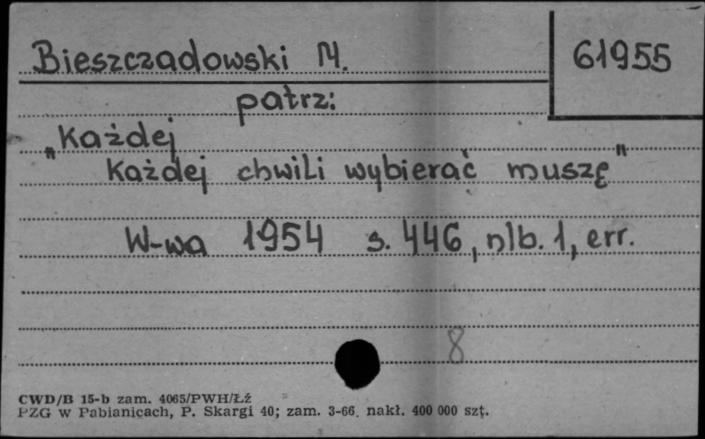 Bieszczadowski M. 61955
patrz:
„Każdej
Każdej chwili wybierać muszę"
W-wa 1954 s. 446, nlb. 1, err.
8
CWD/B 15-b zam. 4065/PWH/Łż
PZG w Pabianicach, P. Skargi 40; zam. 3-66. nakł. 400 000 szt.